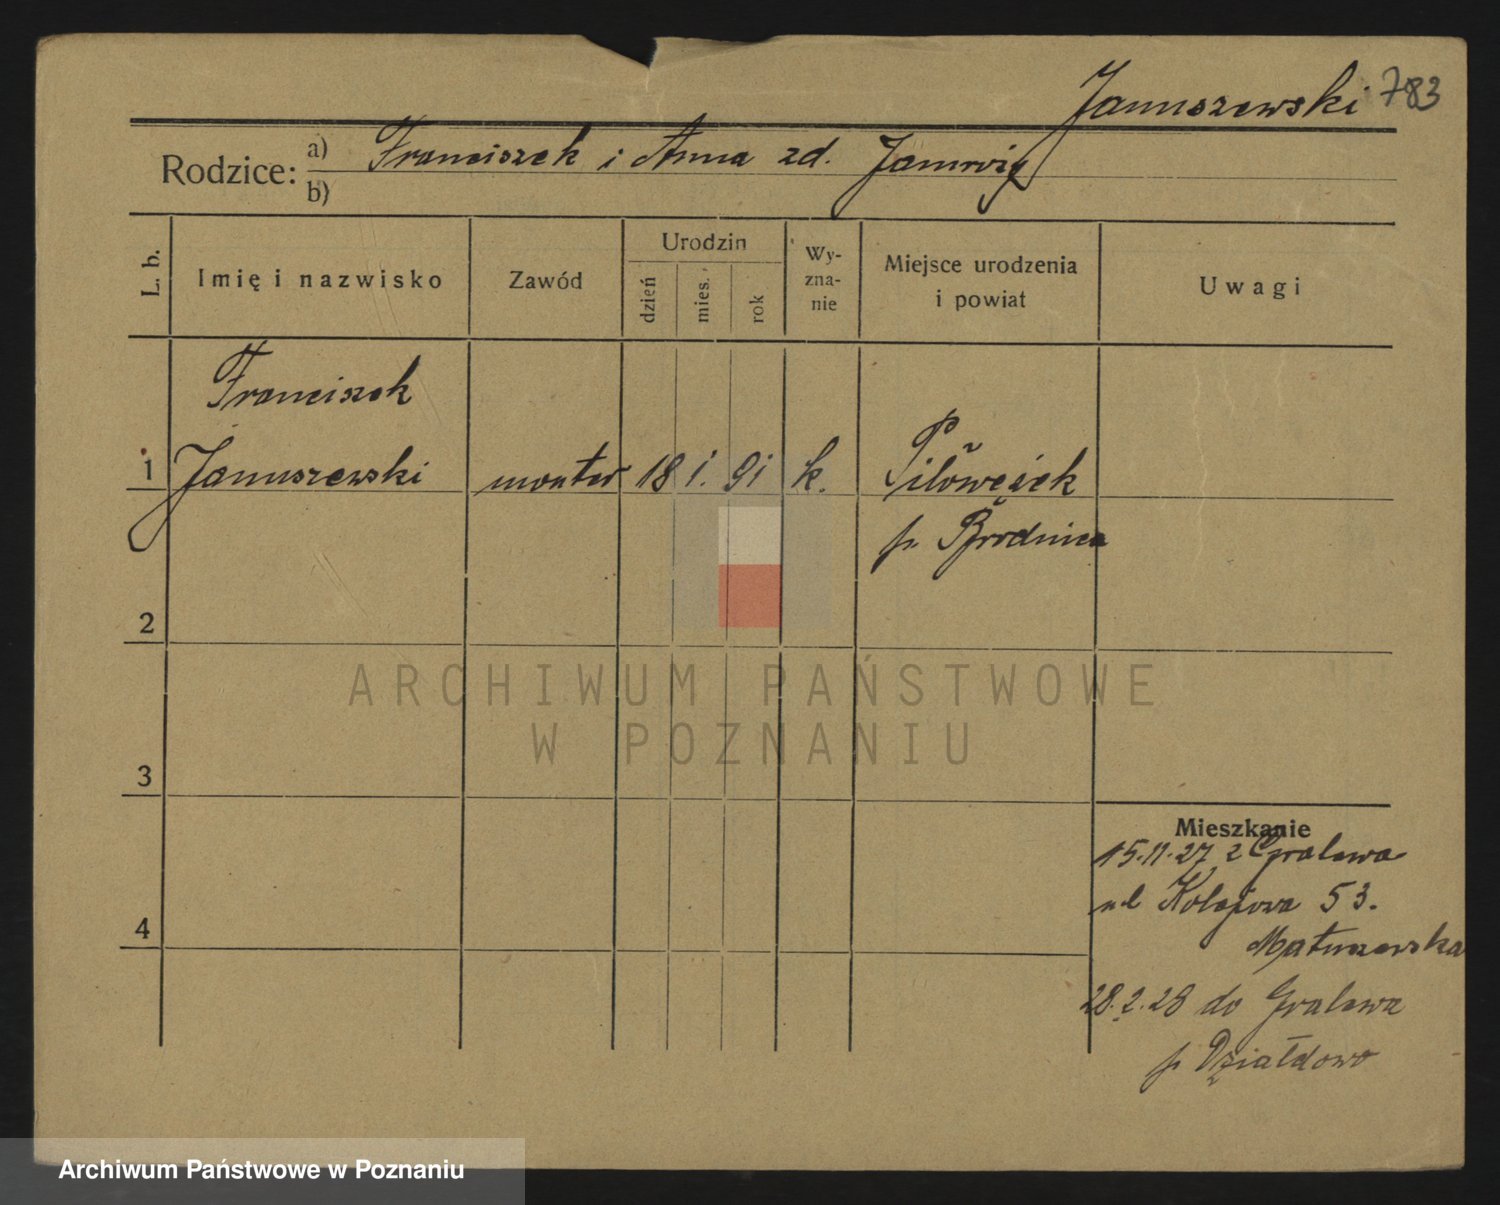 Januszewski 783
Rodzice: a) Franciszek i Anna zd.
b)
L. b.
Imię i nazwisko
Zawód
Urodzin
dzień
mies.
rok
Wy-
zna-
nie
Miejsce urodzenia
i powiat
Uwagi
Franciszek
1 Januszewski monter 18 1. 91 k.
p. Brodnica
2
3
4
Mieszkanie
15.11.27 z Gralewa
ul Kolejowa 53.
Matuszewska
28.2.28 do Gralewa
p Działdowo
ARCHIWUM PAŃSTWOWE
W POZNANIU
Archiwum Państwowe w Poznaniu